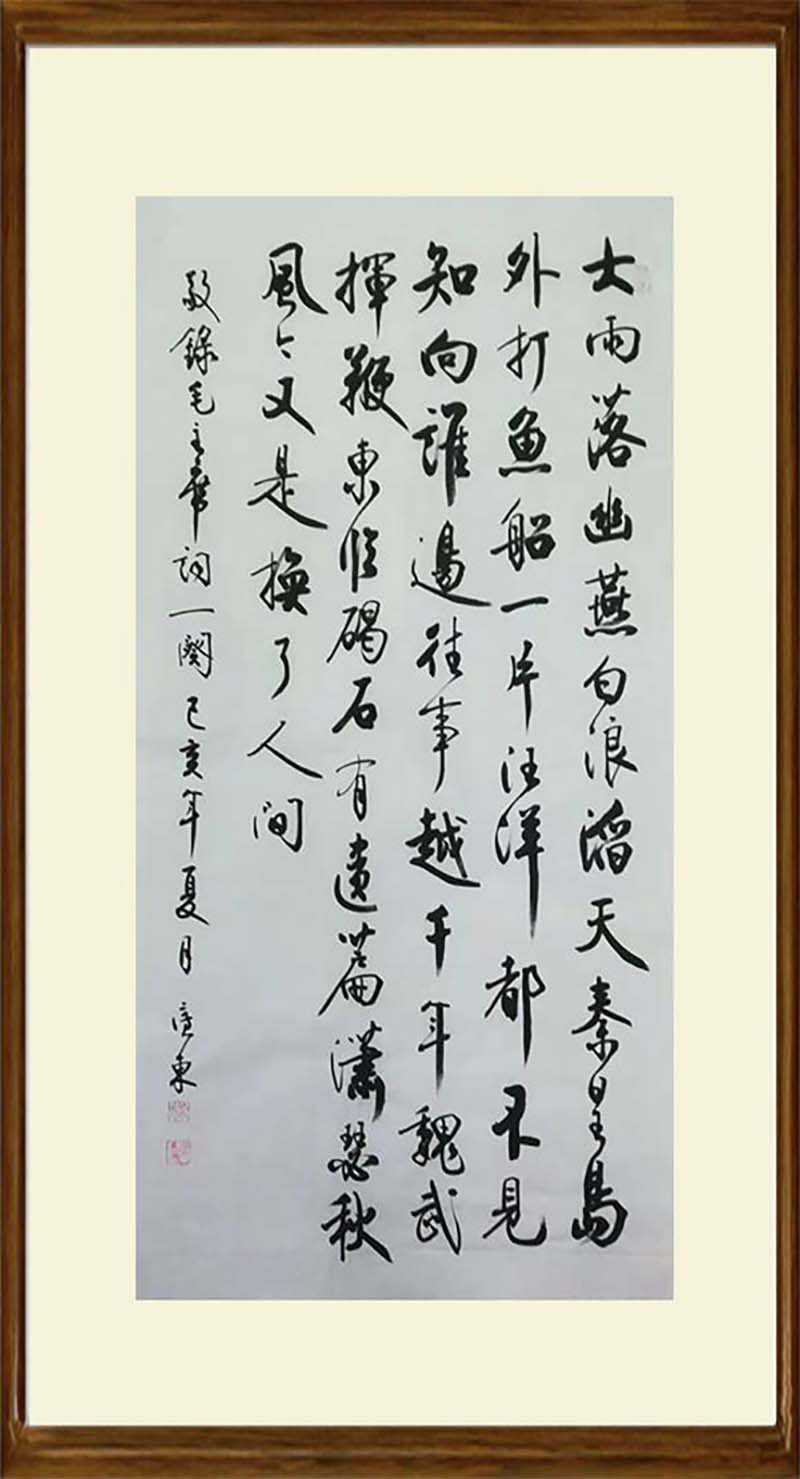 大雨落幽燕白浪滔天秦皇島
外打魚船一片汪洋都不見
知向誰邊往事越千年魏武
揮鞭東臨碣石有遺篇瀟瑟秋
風今又是換了人間
敬錄毛主席詞一闋己亥年夏月 東